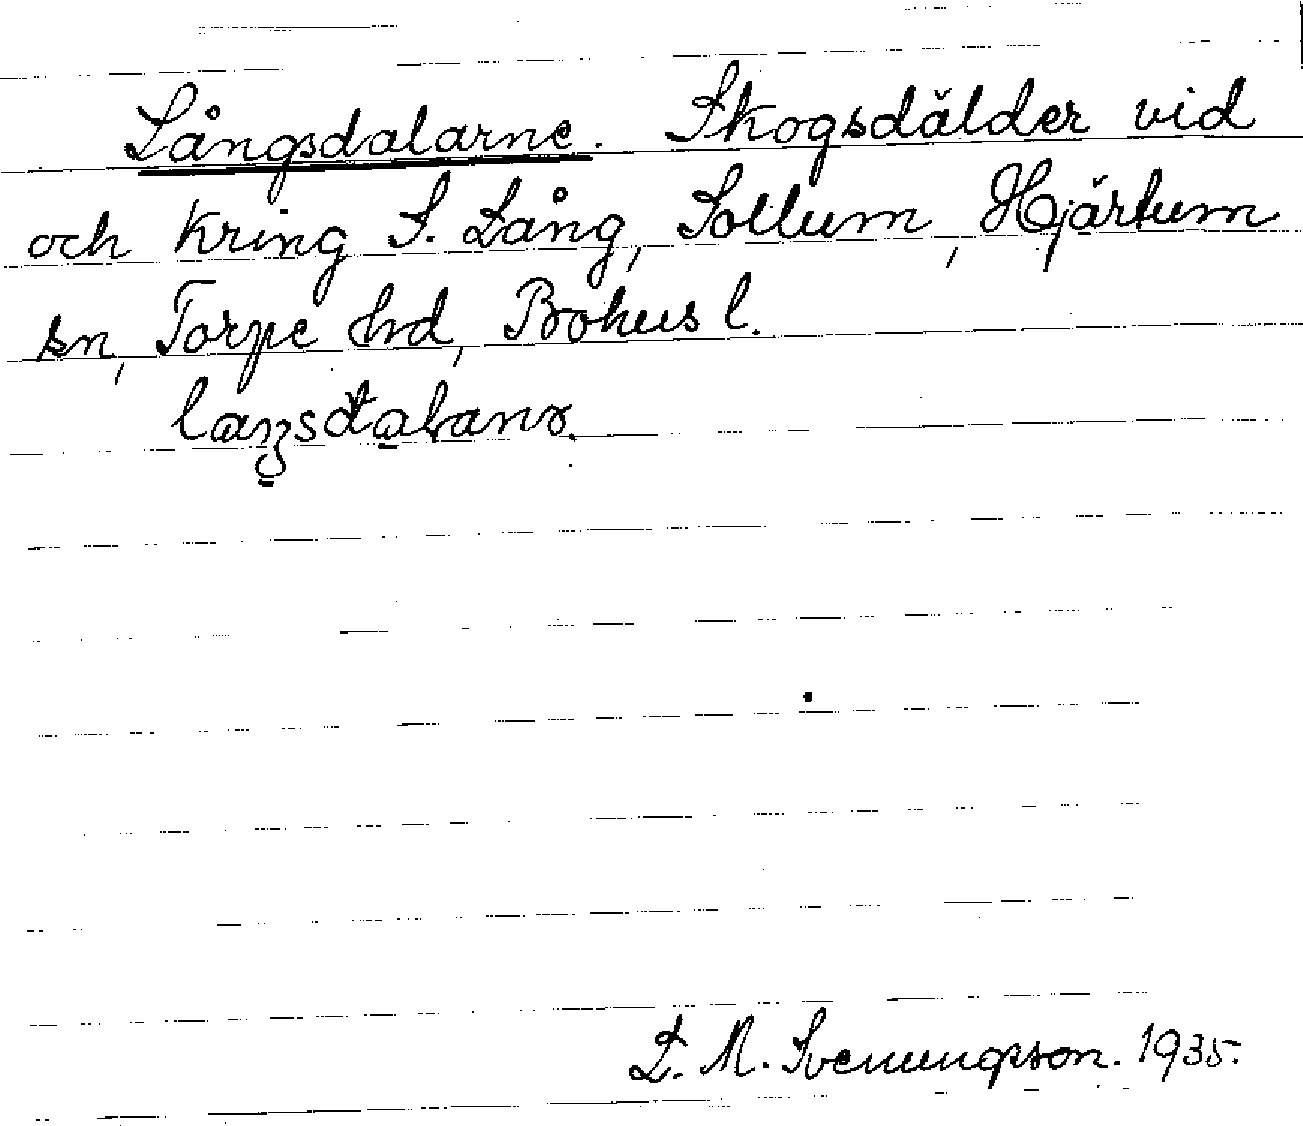 Långsdalarne. Skogsdälder vid
och kring S. Lång, Sollum, Hjärtum
sn, Torpe hrd, Bohus l.
L. M. Svenungsson. 1935.